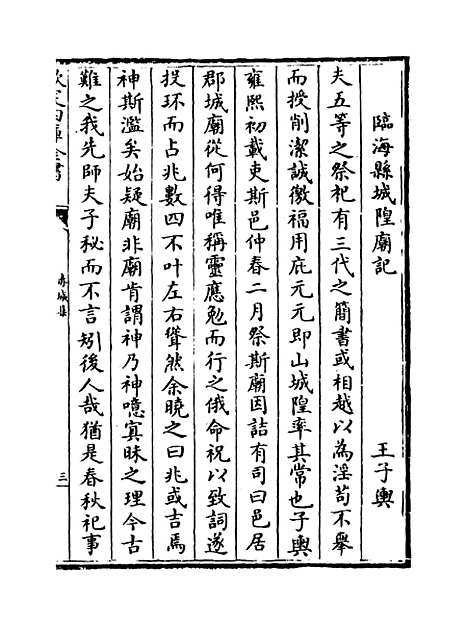 臨海縣城隍廟記
王子輿
夫五等之祭祀有三代之簡書或相越以為淫苟不舉
而授削潔誠徼福用庇元元即山城隍率其常也子輿
雍熙初載吏斯邑仲春二月祭斯廟因詰有司曰邑居
郡城廟從何得唯稱靈應勉而行之俄命祝以致詞遂
投环而占兆數四不叶左右聳然余曉之曰兆或吉焉
神斯濫矣始疑廟非廟肯謂神乃神噫寘昧之理今古
難之我先師夫子秘而不言矧後人哉猶是春秋祀事
欽定四庫全書
赤城集
三